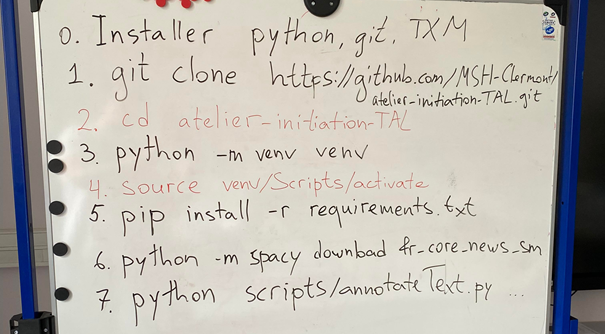 0. Installer python, git, TXM
1. git clone https://github.com/MSH-Clermont/
atelier-initiation-TAL.git
2. cd atelier-initiation-TAL
3. python -m venv venv
4. source venv/Scripts/activate
5. pip install -r requirements.txt
6. python -m spacy download fr_core_news_sm
7. python scripts/annotateText.py ...